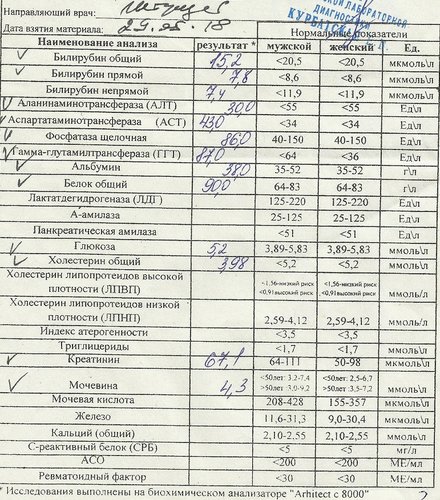 Направляющий врач:
ДИАГНОСТИКИ
Дата взятия материала: 29.05.18
Нормальные показатели
Наименование анализа результат * мужской женский Ед.
Билирубин общий 15,2 <20,5 <20,5 мкмоль\л
Билирубин прямой 7,8 <8,6 <8,6 мкмоль\л
Билирубин непрямой 7,4 <11,9 <11,9 мкмоль\л
Аланинаминотрансфераза (АЛТ) 30,0 <55 <55 Ед\л
Аспартатаминотрансфераза (АСТ) 43,0 <34 <34 Ед\л
Фосфатаза щелочная 86,0 40-150 40-150 Ед\л
Гамма-глутамилтрансфераза (ГГТ) 87,0 <64 <36 Ед\л
Альбумин 38,0 35-52 35-52 г\л
Белок общий 90,0 64-83 64-83 г\л
Лактатдегидрогеназа (ЛДГ) 125-220 125-220 Ед\л
А-амилаза 25-125 25-125 Ед\л
Панкреатическая амилаза <51 <51 Ед\л
Глюкоза 5,2 3,89-5,83 3,89-5,83 ммоль\л
Холестерин общий 3,98 <5,2 <5,2 ммоль\л
Холестерин липопротеидов высокой
плотности (ЛПВП) <1,56-низкий риск <1,56-низкий риск ммоль/л
<0,91высокий риск <0,91высокий риск
Холестерин липопротеидов низкой
плотности (ЛПНП) 2,59-4,12 2,59-4,12 ммоль/л
Индекс атерогенности <3,5 <3,5
Триглицериды <1,7 <1,7 ммоль\л
Креатинин 67,1 64-111 50-98 мкмоль\л
<50лет: 3.2-7.4 <50лет: 2,5-6,7
Мочевина 4,3 >50лет: 3,0-9,2 >50лет: 3,5-7,2 ммоль\л
Мочевая кислота 208-428 155-357 мкмоль\л
Железо 11,6-31,3 9,0-30,4 мкмоль\л
Кальций (общий) 2,10-2.55 2,10-2,55 ммоль\л
С-реактивный белок (СРБ) <5 <5 мг/л
АСО <200 <200 МЕ/мл
Ревматоидный фактор <30 <30 МЕ/мл
* Исследования выполнены на биохимическом анализаторе "Arhitect c 8000"